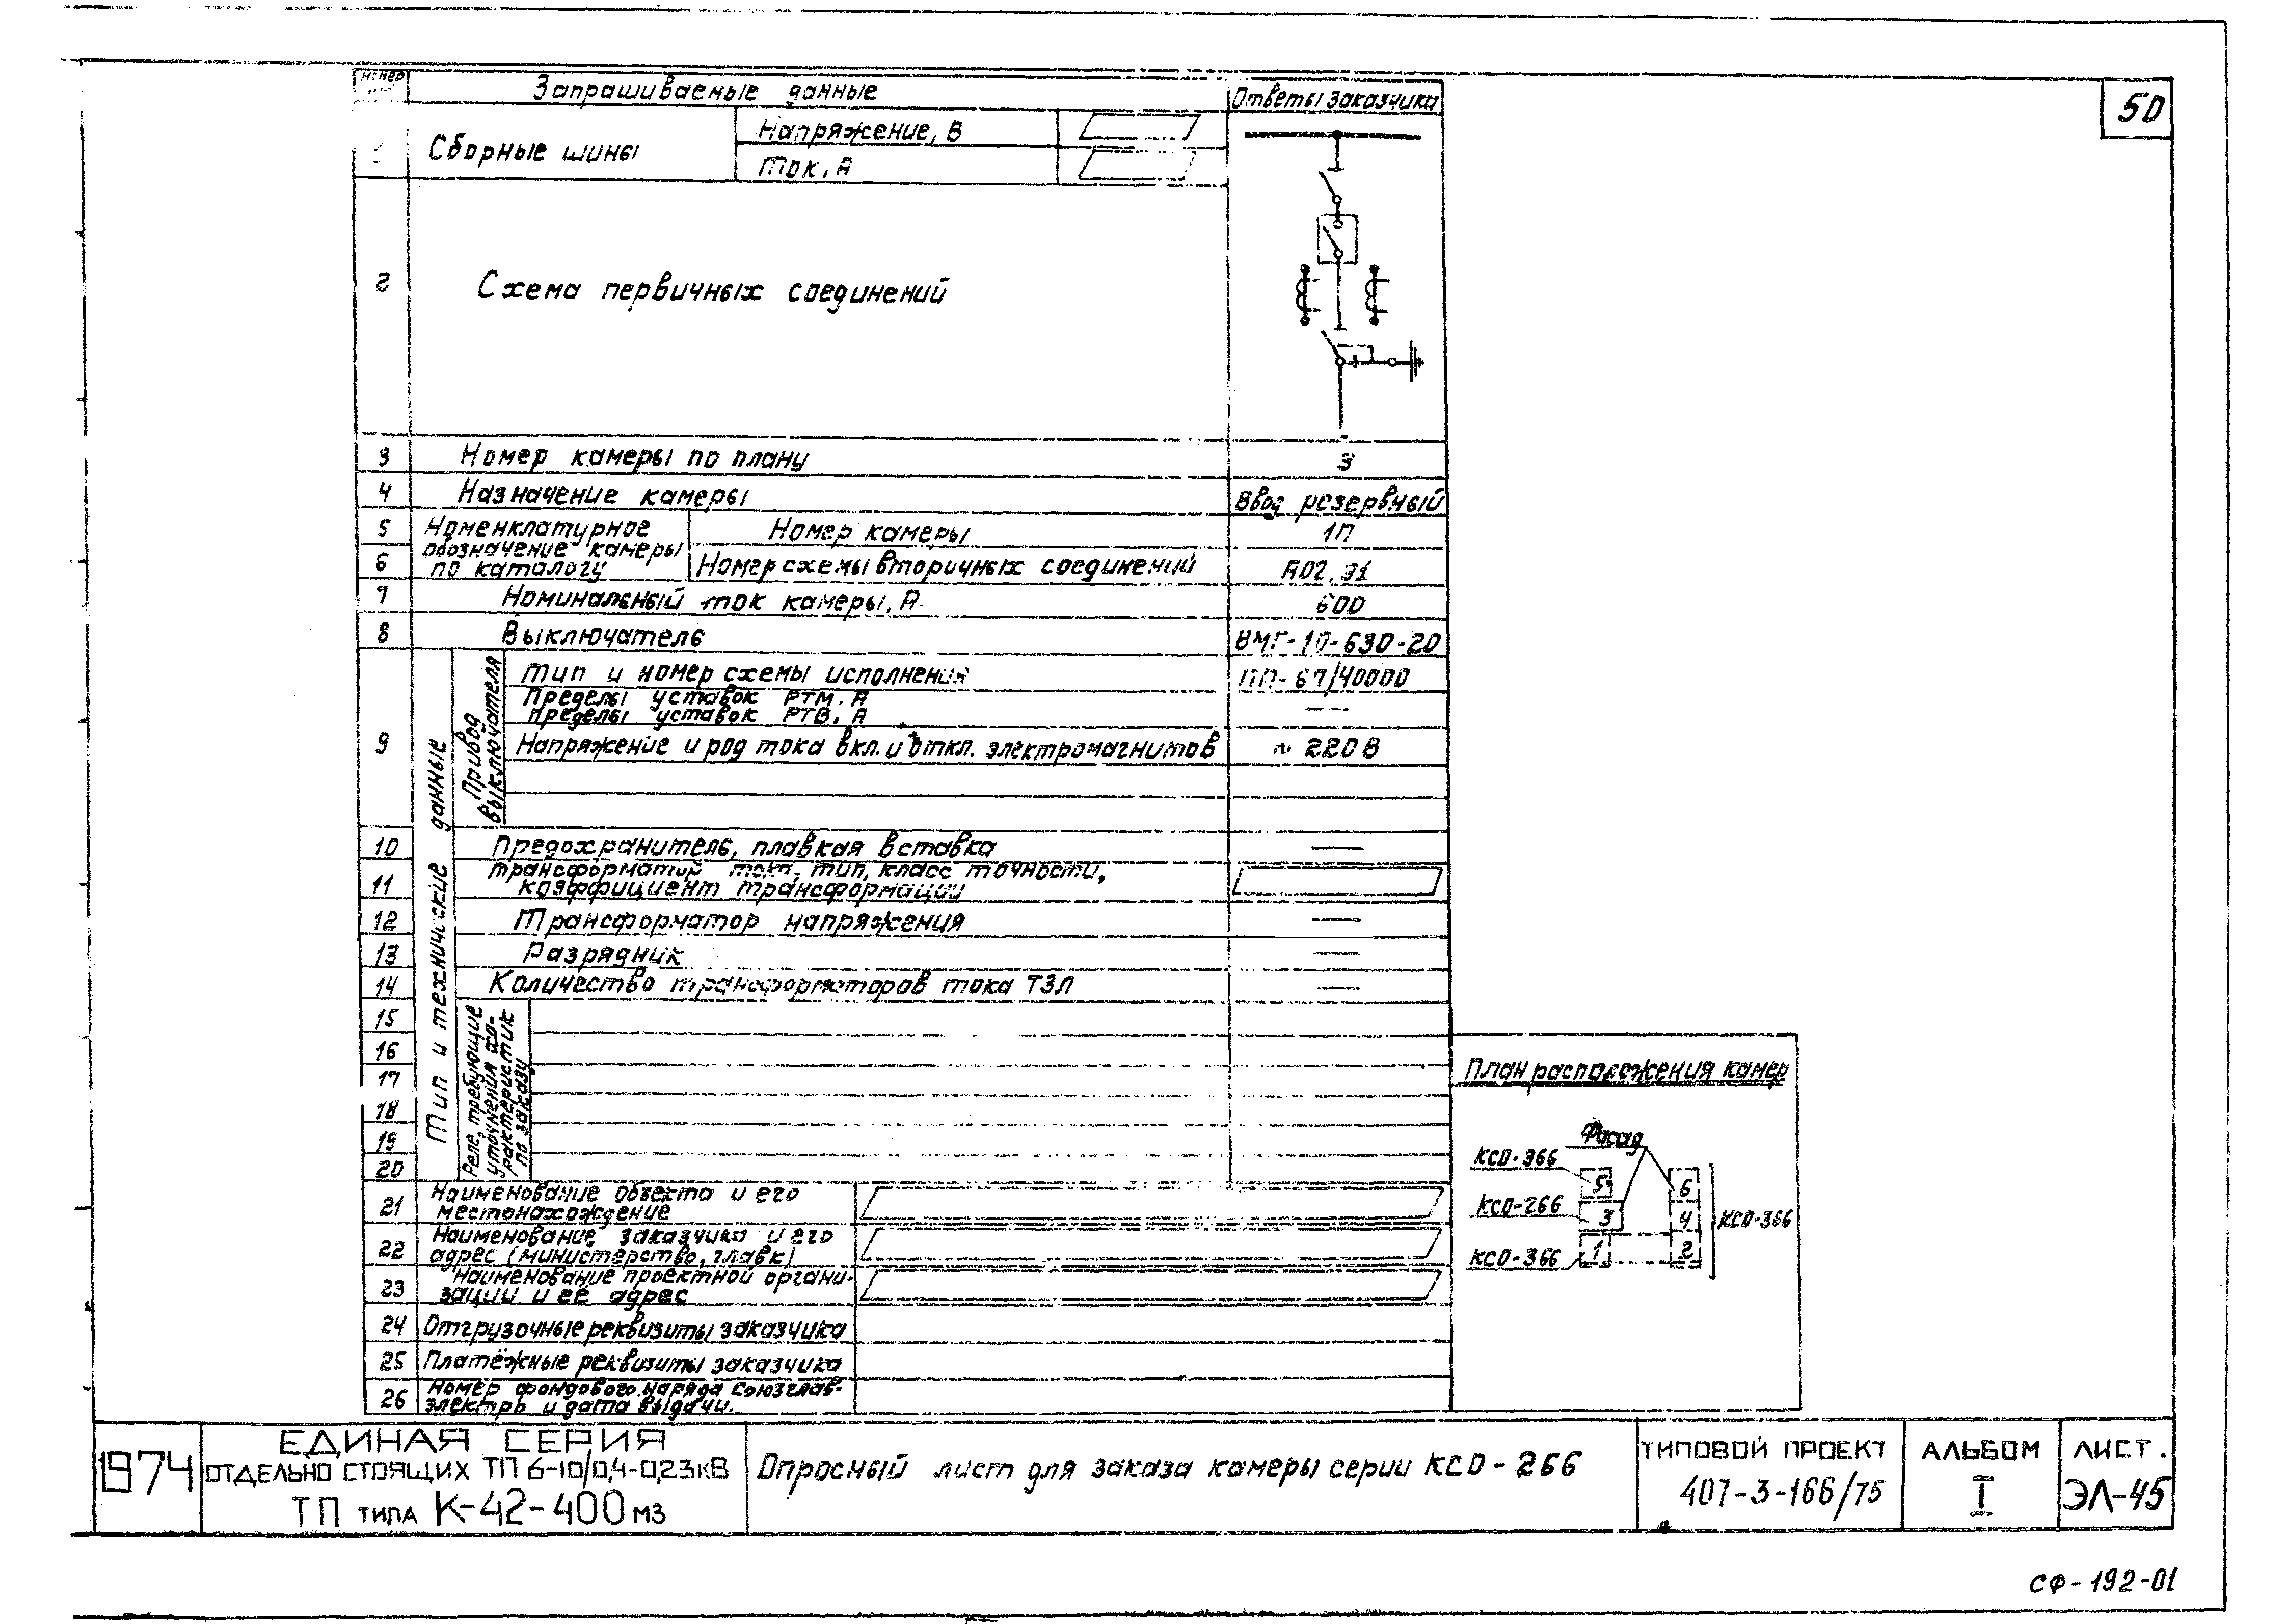 50
номер
Запрашиваемые данные
Ответы заказчика
1
Сборные шины
Напряжение, В
Ток, А
2
Схема первичных соединений
3
Номер камеры по плану
3
4
Назначение камеры
Ввод резервный
5
Номенклатурное обозначение камеры по каталогу
Номер камеры
1П
6
Номер схемы вторичных соединений
А02, Э1
7
Номинальный ток камеры, А.
600
8
Выключатель
ВМГ-10-630-20
Тип и технические данные
9
Привод выключателя
Тип и номер схемы исполнения
ПП-67/40000
Пределы уставок РТМ, А
Пределы уставок РТВ, А
—
Напряжение и род тока вкл. и откл. электромагнитов
~ 220В
10
Предохранитель, плавкая вставка
—
11
Трансформатор тока, тип, класс точности,
коэффициент трансформации
12
Трансформатор напряжения
—
13
Разрядник
—
14
Количество трансформаторов тока ТЗЛ
—
Реле, требующие
уточнения ха-
рактеристик
по заказу
15
16
17
18
19
20
21
Наименование объекта и его
местонахождение
22
Наименование заказчика и его
адрес (министерство, главк)
23
Наименование проектной органи-
зации и её адрес
24
Отгрузочные реквизиты заказчика
25
Платёжные реквизиты заказчика
26
Номер фондового наряда Союзглав-
электро и дата выдачи.
План расположения камер
Фасад
КСО-366
5
6
КСО-266
3
4
КСО-366
КСО-366
1
2
1974
ЕДИНАЯ СЕРИЯ
ОТДЕЛЬНО СТОЯЩИХ ТП 6-10/0,4-0,23кВ
ТП типа К-42-400м3
Опросный лист для заказа камеры серии КСО-266
ТИПОВОЙ ПРОЕКТ
407-3-166/75
АЛЬБОМ
I
ЛИСТ.
ЭЛ-45
СФ-192-01